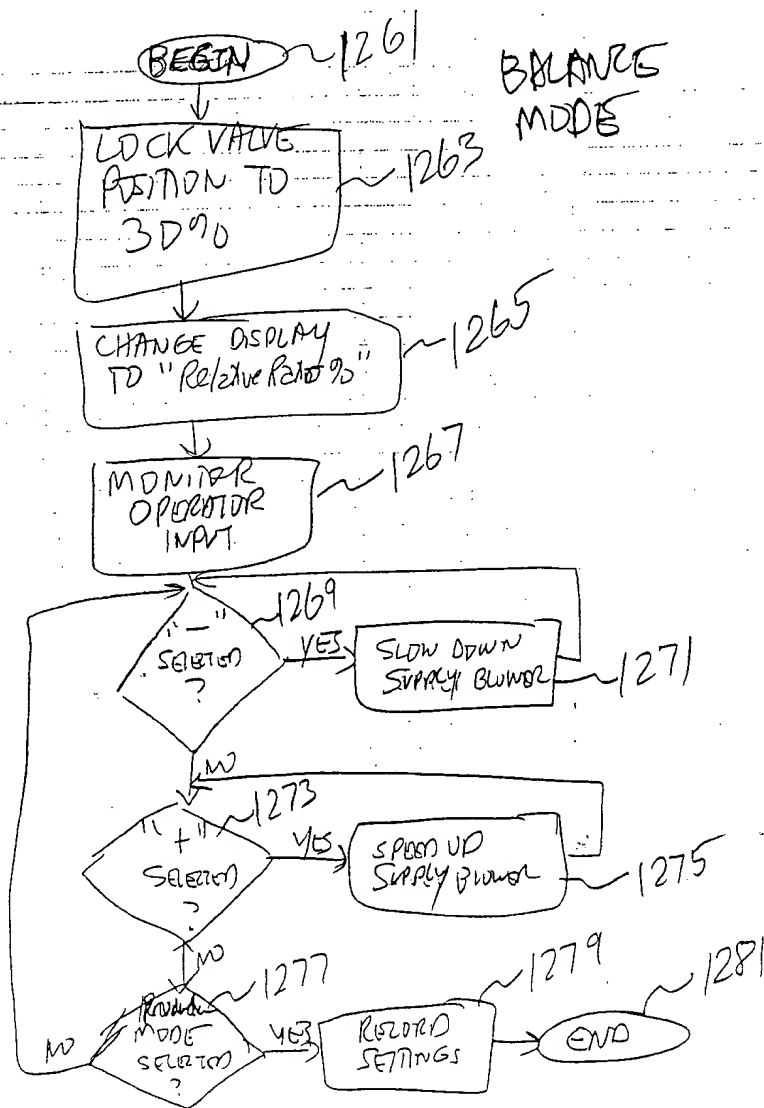 BEGIN
1261
BALANCE
MODE
LOCK VALVE
POSITION TO
30%
1263
CHANGE DISPLAY
TO "Relative Ratio %"
1265
MONITOR
OPERATOR
INPUT
1267
"-"
SELECTED
?
1269
YES
SLOW DOWN
SUPPLY BLOWER
1271
NO
"+"
SELECTED
?
1273
YES
SPEED UP
SUPPLY BLOWER
1275
NO
MODE
SELECTED
?
1277
NO
YES
RECORD
SETTINGS
1279
END
1281